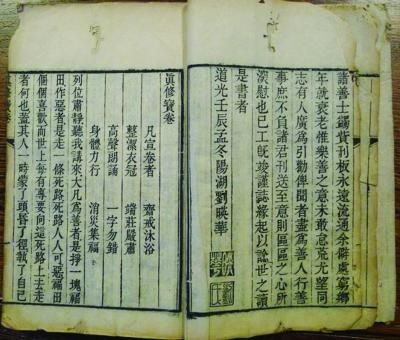 諸善士鐫貲刊板永遠流通余僻處窮鄉
年就衰老惟樂善之意未敢怠荒尤望同
志有人廣為引勸俾聞者盡為善人行善
事庶不負諸君刊送至意則區區之心所
深慰也已工既竣謹誌緣起以諗世之讀
是書者
道光壬辰孟冬陽湖劉暎華
真修寶卷
凡宣卷者　齋戒沐浴
整潔衣冠　端莊嚴肅
高聲朗誦　一字勿錯
身體力行　消災集福
列位肅靜聽我講來大凡為善者是掙一塊福
田作惡者是走一條死路死路人人可惡福田
個個喜歡而世上每有專要向這死路上去走
者何也蓋其人一時蒙了頭昏了徑執了自己